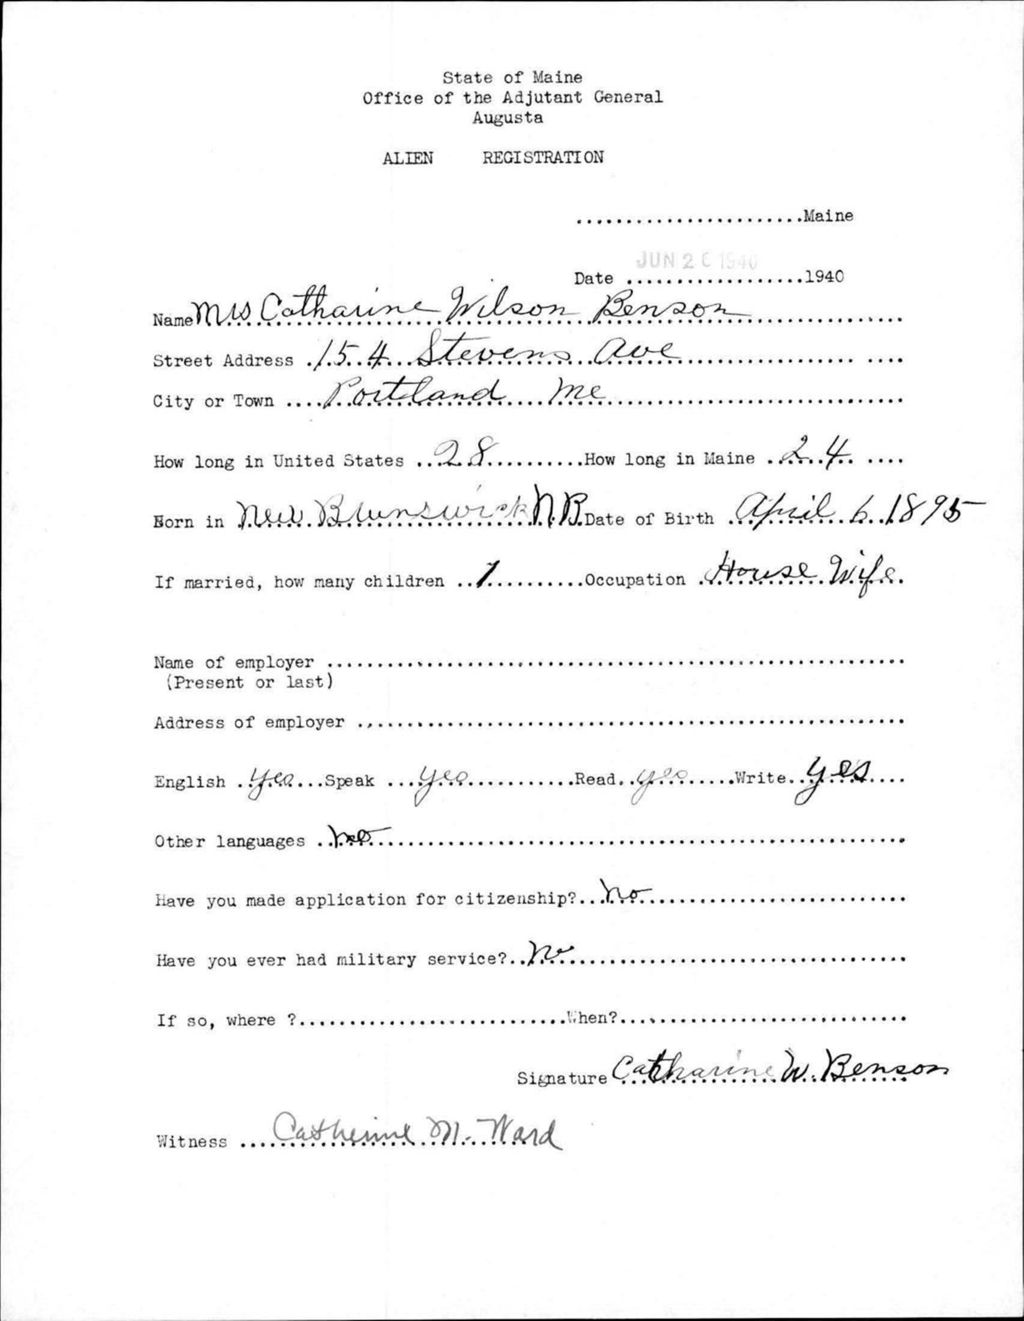 State of Maine
Office of the Adjutant General
Augusta
ALIEN REGISTRATION
.......................Maine
JUN 26 1940
Date ..................1940
Name Mrs Catharine Wilson Benson
Street Address 154 Stevens Ave
City or Town Portland Me
How long in United States 28 How long in Maine 24
Born in New Brunswick N.B. Date of Birth April 6 1895
If married, how many children 1 Occupation House Wife
Name of employer
(Present or last)
Address of employer
English yes Speak yes Read yes Write yes
Other languages no
Have you made application for citizenship? no
Have you ever had military service? no
If so, where ? When?
Signature Catharine W. Benson
Witness Catherine M. Ward